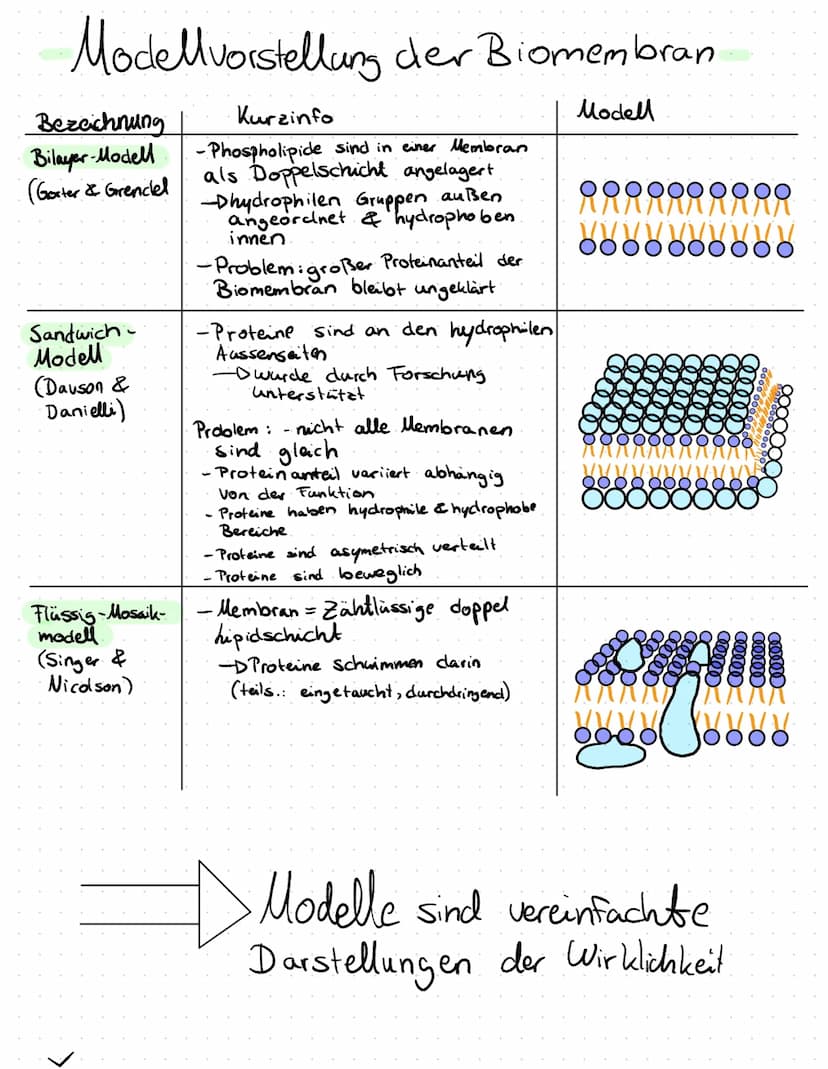 Modellvorstellung der Biomembran
Bezeichnung
Kurzinfo
Modell
Bilayer-Modell
(Gorter & Grendel
- Phospholipide sind in einer Membran
als Doppelschicht angelagert
→ hydrophilen Gruppen außen
angeordnet & hydrophoben
innen
- Problem: großer Proteinanteil der
Biomembran bleibt ungeklärt
Sandwich-
Modell
(Davson &
Danielli)
- Proteine sind an den hydrophilen
Aussenseiten
→ wurde durch Forschung
unterstützt
Problem: - nicht alle Membranen
sind gleich
- Proteinanteil variiert abhängig
von der Funktion
- Proteine haben hydrophile & hydrophobe
Bereiche
- Proteine sind asymetrisch verteilt
- Proteine sind beweglich
Flüssig-Mosaik-
modell
(Singer &
Nicolson)
- Membran = Zähflüssige doppel
lipidschicht
→ Proteine schwimmen darin
(teils.: eingetaucht, durchdringend)
Modelle sind vereinfachte
Darstellungen der Wirklichkeit